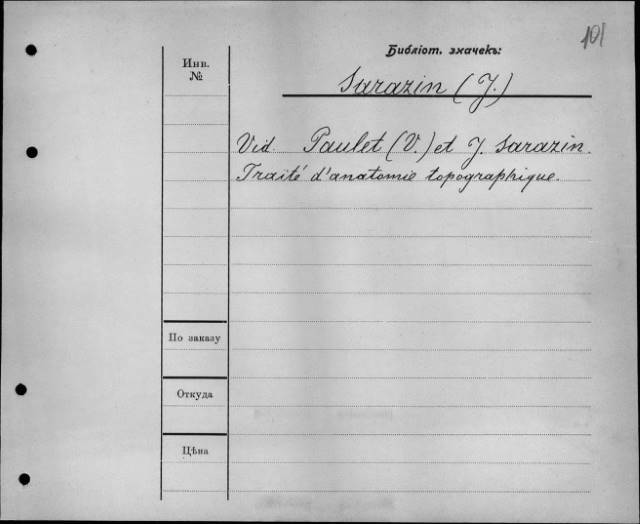 101
Библіот. значекъ:
Инв. №
Sarazin (J.)
Vid Paulet (V.) et J. Sarazin.
Traité d'anatomie topographique.
По заказу
Откуда
Цѣна